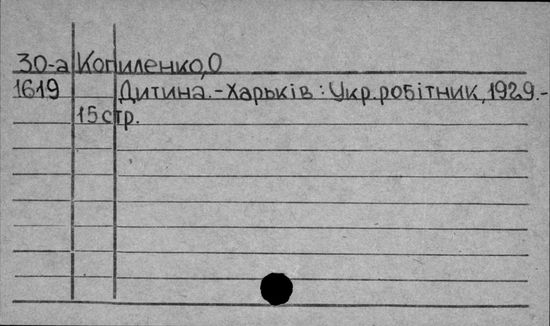 30-а Копиленко,О
1619 Дитина.-Харьків: Укр.робітник,1929.-
15стр.